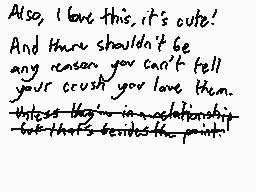 Also, I love this, it's cute!
And there shouldn't be
any reason you can't tell
your crush you love them.
Unless they're in a relationship
but that's besides the point.